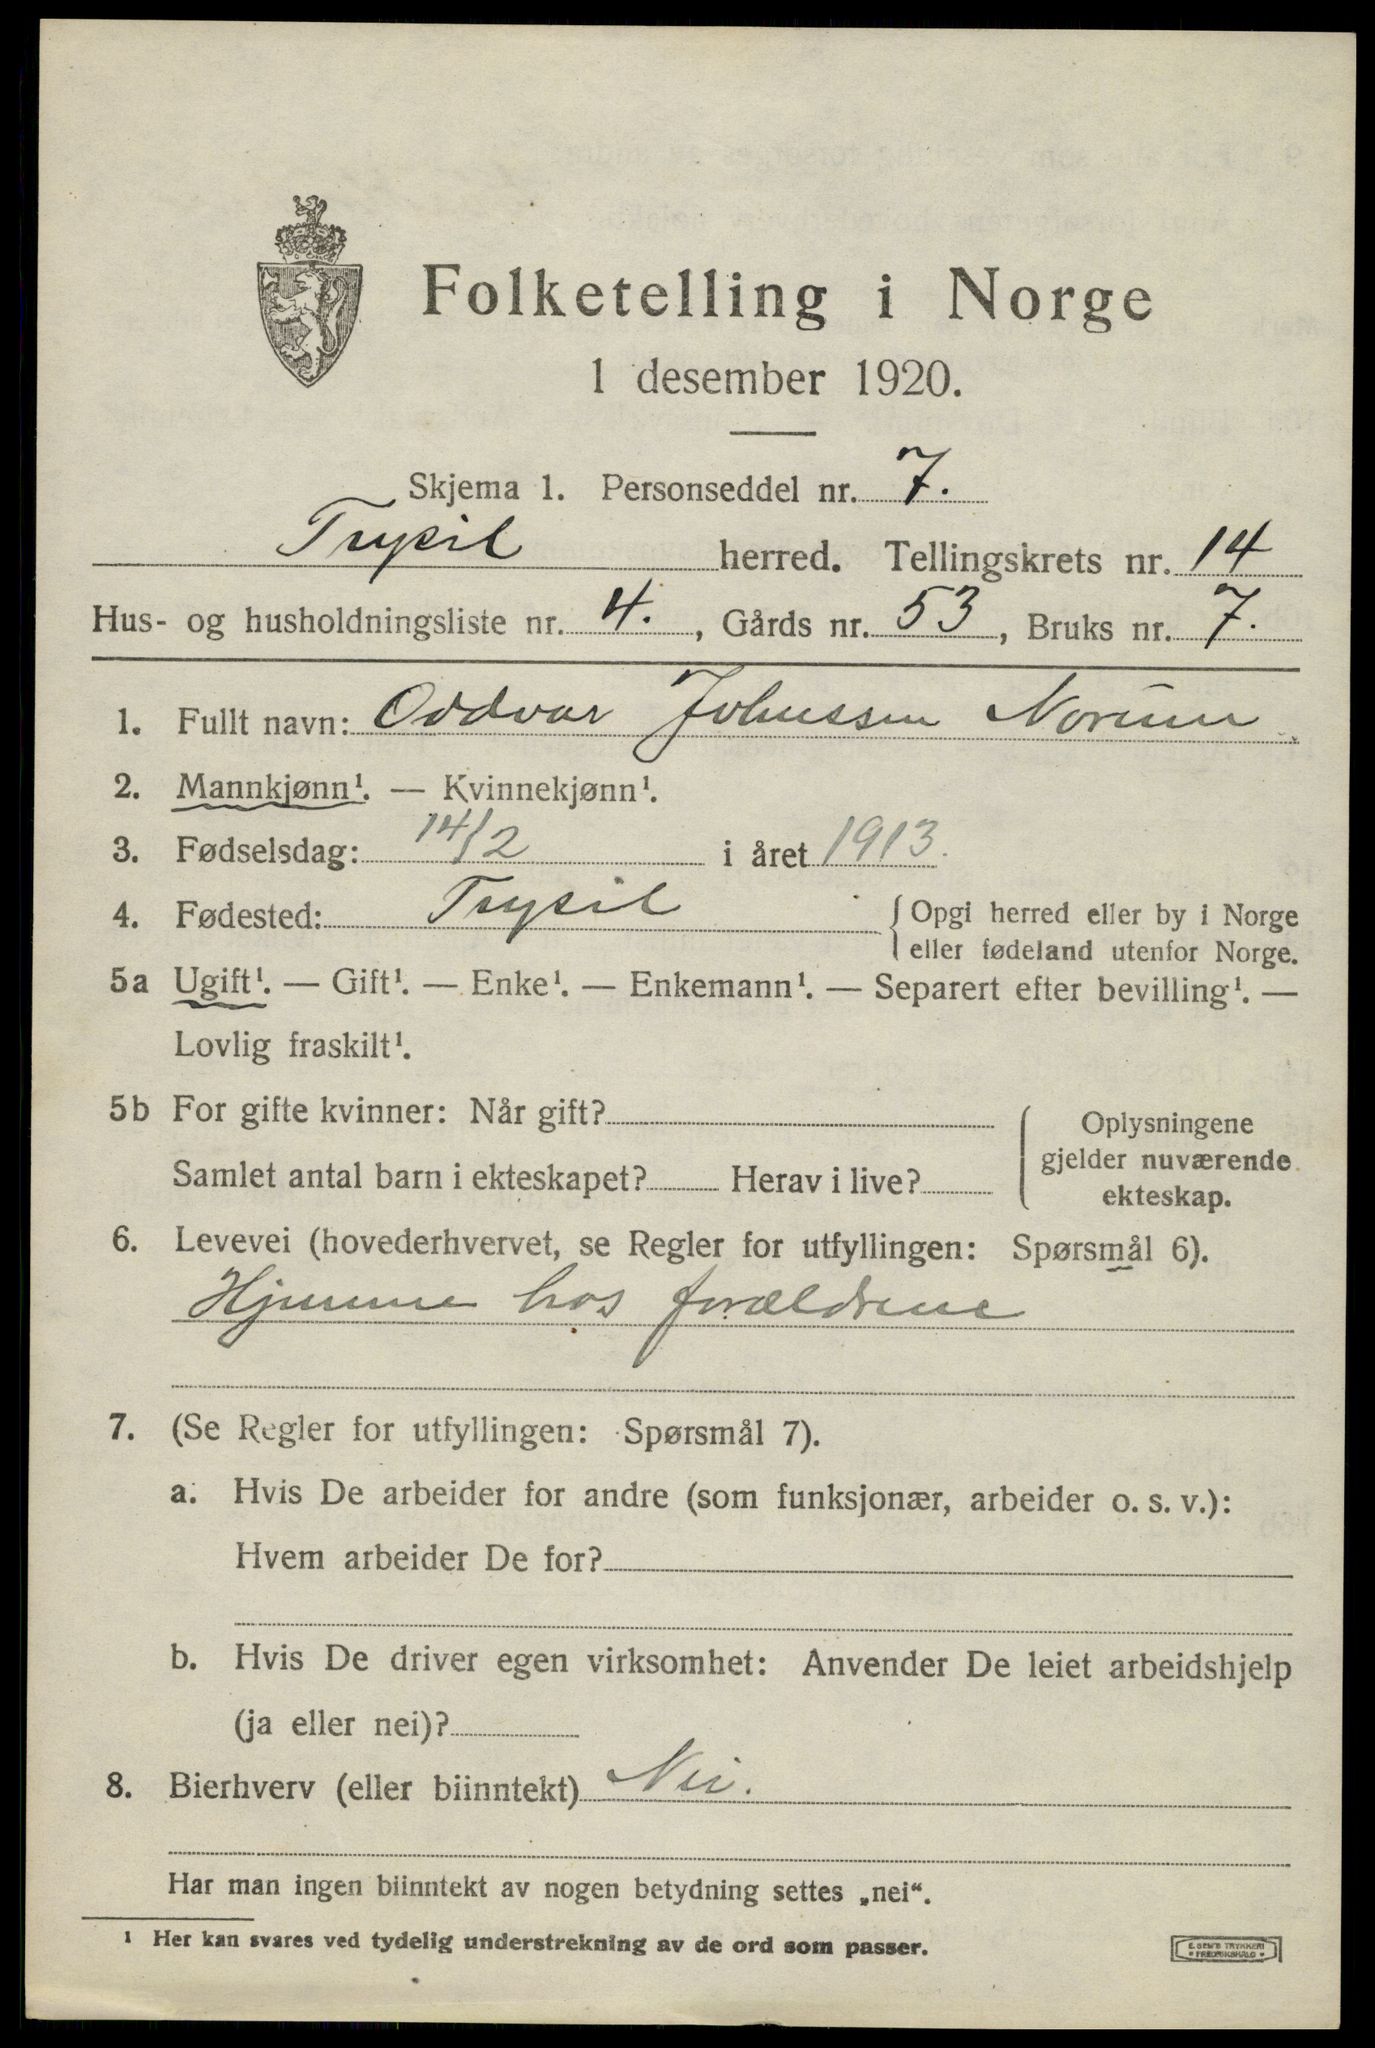 Folketelling i Norge
1 desember 1920.
Skjema 1. Personseddel nr. 7.
Trysil herred. Tellingskrets nr. 14
Hus- og husholdningsliste nr. 4. , Gårds nr. 53 , Bruks nr. 7.
1. Fullt navn: Oddvar Johnssen Norum
2. Mannkjønn¹. — Kvinnekjønn¹.
3. Fødselsdag: 14/2 i året 1913.
4. Fødested: Trysil { Opgi herred eller by i Norge
eller fødeland utenfor Norge.
5a Ugift¹. — Gift¹. — Enke¹. — Enkemann¹. — Separert efter bevilling¹. —
Lovlig fraskilt¹.
5b For gifte kvinner: Når gift? { Oplysningene
gjelder nuværende
Samlet antal barn i ekteskapet? Herav i live?
ekteskap.
6. Levevei (hovederhvervet, se Regler for utfyllingen: Spørsmål 6).
Hjemme hos forældrene
7. (Se Regler for utfyllingen: Spørsmål 7).
a. Hvis De arbeider for andre (som funksjonær, arbeider o. s. v.):
Hvem arbeider De for?
b. Hvis De driver egen virksomhet: Anvender De leiet arbeidshjelp
(ja eller nei)?
8. Bierhverv (eller biinntekt) Nei.
Har man ingen biinntekt av nogen betydning settes „nei“.
¹ Her kan svares ved tydelig understrekning av de ord som passer.
E. SEM'S TRYKKERI
• FREDRIKSHALD •